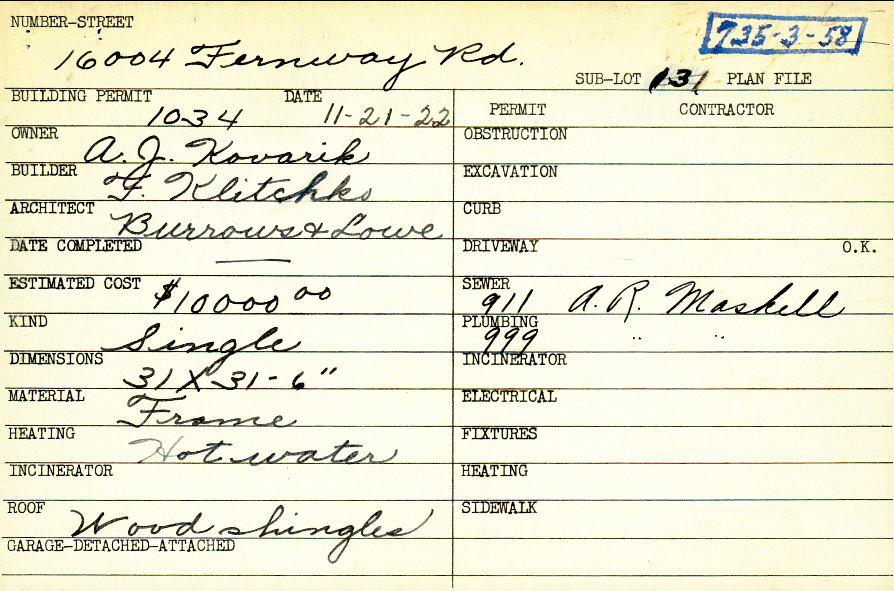 NUMBER-STREET
735-3-58
16004 Fernway Rd.
SUB-LOT 131 PLAN FILE
BUILDING PERMIT 1034 DATE 11-21-22
PERMIT CONTRACTOR
OWNER A. J. Kovarik
OBSTRUCTION
BUILDER F. Klitchko
EXCAVATION
ARCHITECT Burrows & Lowe
CURB
DATE COMPLETED —
DRIVEWAY O.K.
ESTIMATED COST $10000 00
SEWER 911 A. R. Maskell
KIND Single
PLUMBING 999 " "
DIMENSIONS 31 X 31-6"
INCINERATOR
MATERIAL Frame
ELECTRICAL
HEATING Hot water
FIXTURES
INCINERATOR
HEATING
ROOF Wood shingles
SIDEWALK
GARAGE-DETACHED-ATTACHED